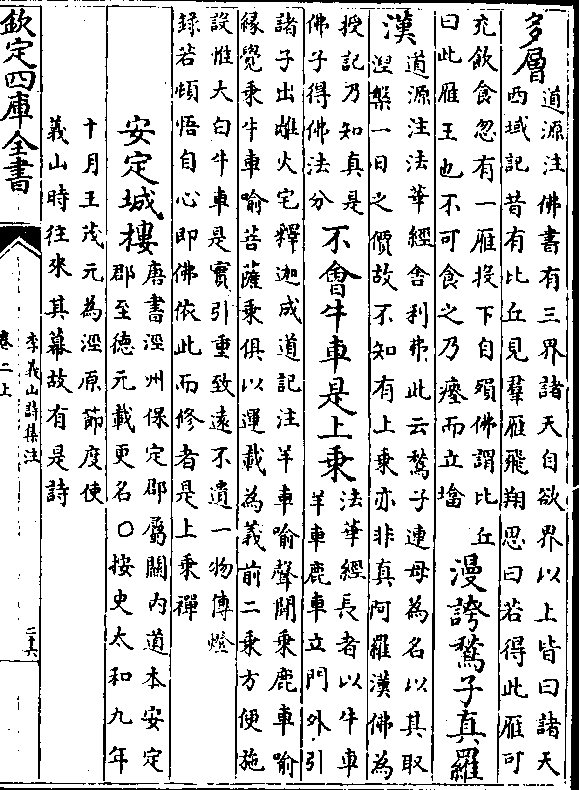 多層
道源注佛書有三界諸天自欲界以上皆曰諸天
西域記昔有比丘見羣雁飛翔思曰若得此雁可
充飲食忽有一雁投下自殞佛謂比丘
曰此雁王也不可食之乃瘞而立㙮
漫誇鶖子真羅
漢
道源注法華經舍利弗此云鶖子連母為名以其取
涅槃一日之價故不知有上乘亦非真阿羅漢佛為
授記乃知真是
佛子得佛法分
不會牛車是上乘
法華經長者以牛車
羊車鹿車立門外引
諸子出離火宅釋迦成道記注羊車喻聲聞乘鹿車喻
緣覺乘牛車喻菩薩乘俱以運載為義前二乘方便施
設惟大白牛車是實引重致遠不遺一物傳燈
録若頓悟自心即佛依此而修者是上乘禪
安定城樓
唐書涇州保定郡屬關内道本安定
郡至德元載更名○按史太和九年
十月王茂元為涇原節度使
義山時往來其幕故有是詩
欽定四庫全書
李義山詩集注
卷二上
二十六